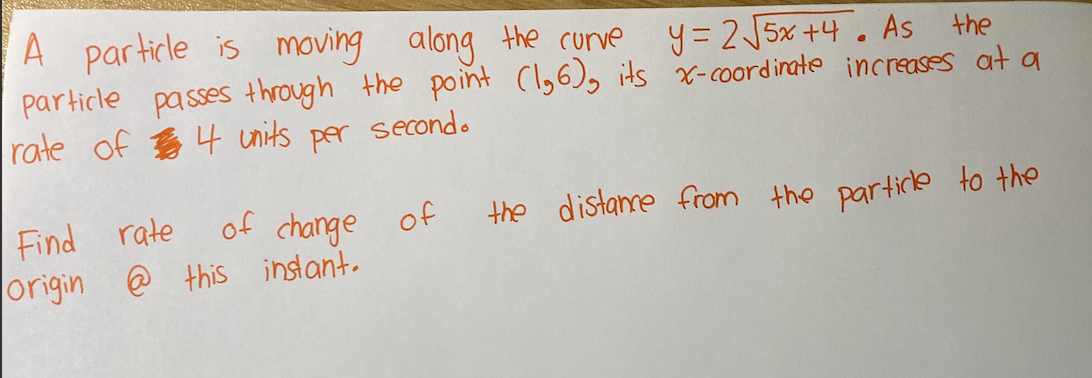 A particle is moving along the curve y = 2√(5x+4). As the
particle passes through the point (1,6), its x-coordinate increases at a
rate of 4 units per second.
Find rate of change of the distance from the particle to the
origin @ this instant.